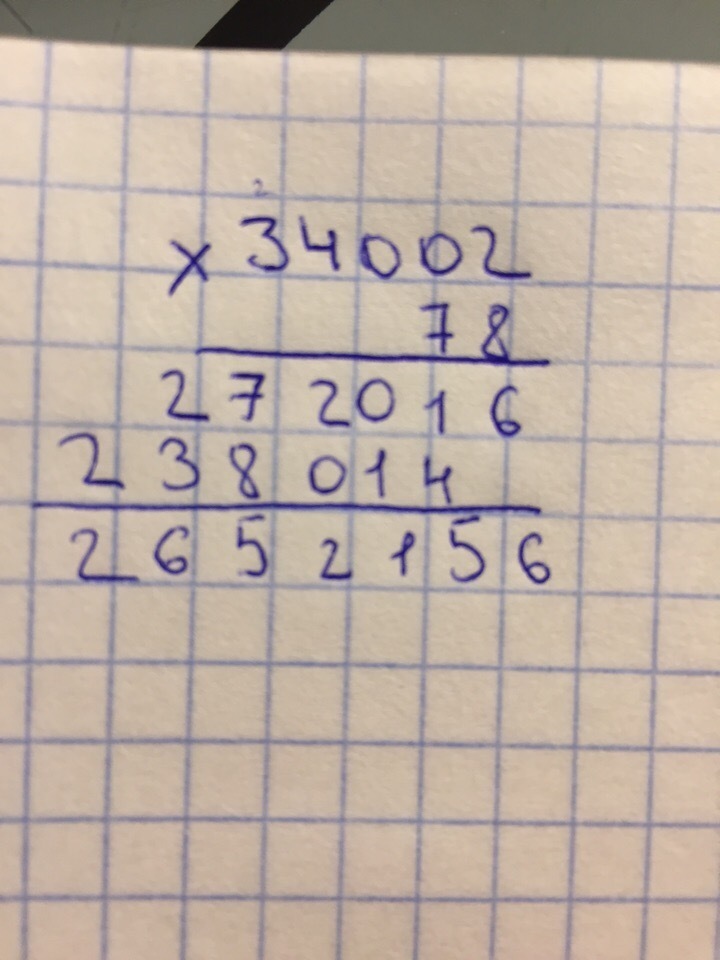 2
× 34002
78
272016
238014
2652156